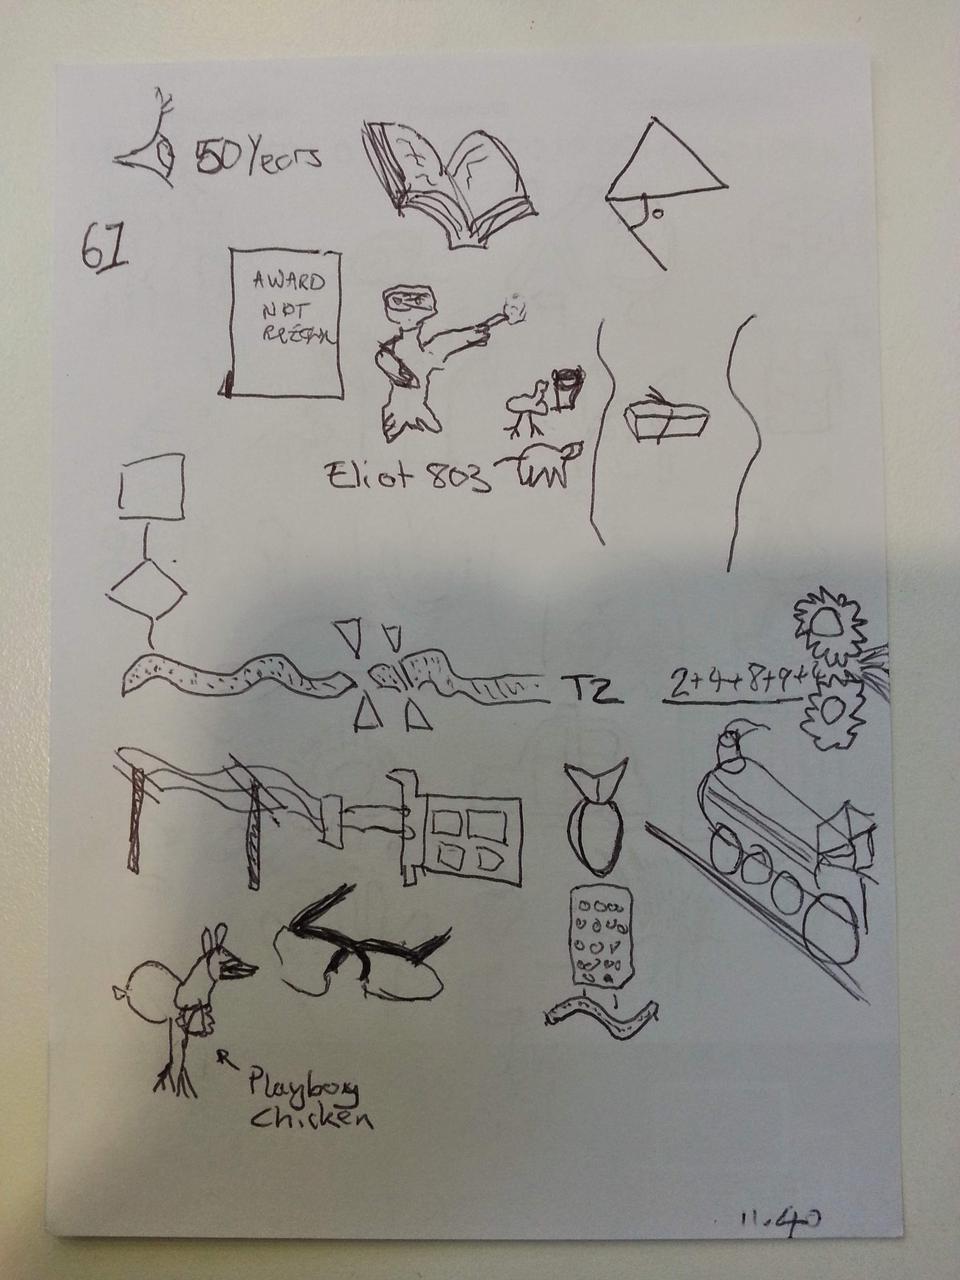 50 Years
61
AWARD
NOT
Eliot 803
T2
2+4+8+9+
Playboy
Chicken
11.40